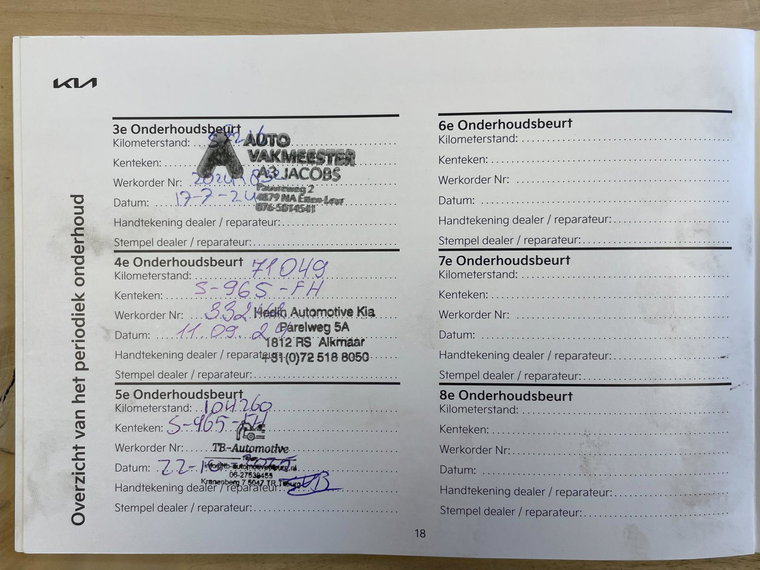 KIA
Overzicht van het periodiek onderhoud
3e Onderhoudsbeurt
Kilometerstand:
Kenteken:
Werkorder Nr:
Datum: 17-7-24
Handtekening dealer / reparateur:
Stempel dealer / reparateur:
AUTO
VAKMEESTER
A3 JACOBS
4879 NA Etten-Leur
076-5014541
4e Onderhoudsbeurt
Kilometerstand: 71049
Kenteken: S-965-FH
Werkorder Nr:
Datum: 11.09.
Handtekening dealer / reparateur:
Stempel dealer / reparateur:
Hedin Automotive Kia
Parelweg 5A
1812 RS Alkmaar
+31(0)72 518 8050
5e Onderhoudsbeurt
Kilometerstand: 104260
Kenteken: S-965-FH
Werkorder Nr:
Datum: 22-10-
Handtekening dealer / reparateur:
Stempel dealer / reparateur:
TB-Automotive
06-27529455
Kranenberg 7 5047 TR Tilburg
6e Onderhoudsbeurt
Kilometerstand:
Kenteken:
Werkorder Nr:
Datum:
Handtekening dealer / reparateur:
Stempel dealer / reparateur:
7e Onderhoudsbeurt
Kilometerstand:
Kenteken:
Werkorder Nr:
Datum:
Handtekening dealer / reparateur:
Stempel dealer / reparateur:
8e Onderhoudsbeurt
Kilometerstand:
Kenteken:
Werkorder Nr:
Datum:
Handtekening dealer / reparateur:
Stempel dealer / reparateur:
18